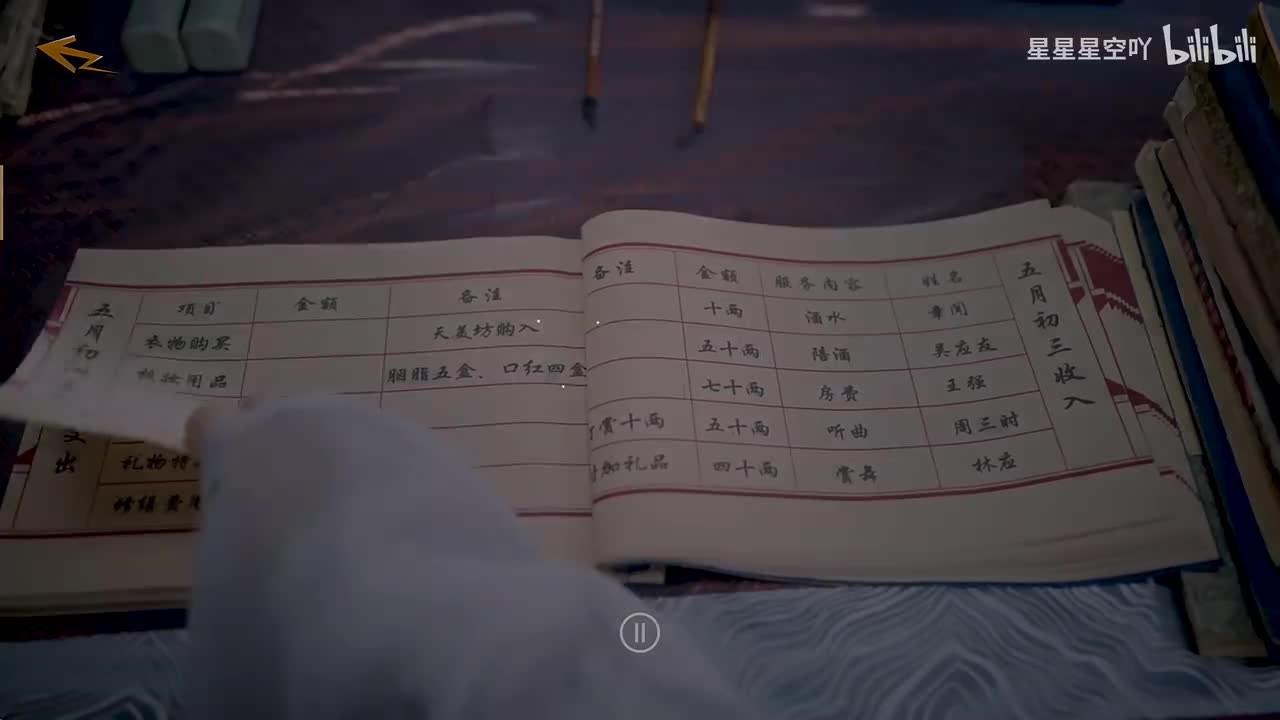 星星星空吖 bilibili
五月初三收入
姓名 服务内容 金额 备注
章闻 酒水 十两
吴友友 陪酒 五十两
王强 房费 七十两
周三时 听曲 五十两 赏十两
林应 赏舞 四十两 礼品
五月初 支出
项目 金额 备注
衣物购买 天美坊购入
梳妆用品 胭脂五盒、口红四盒
礼物
修缮费用